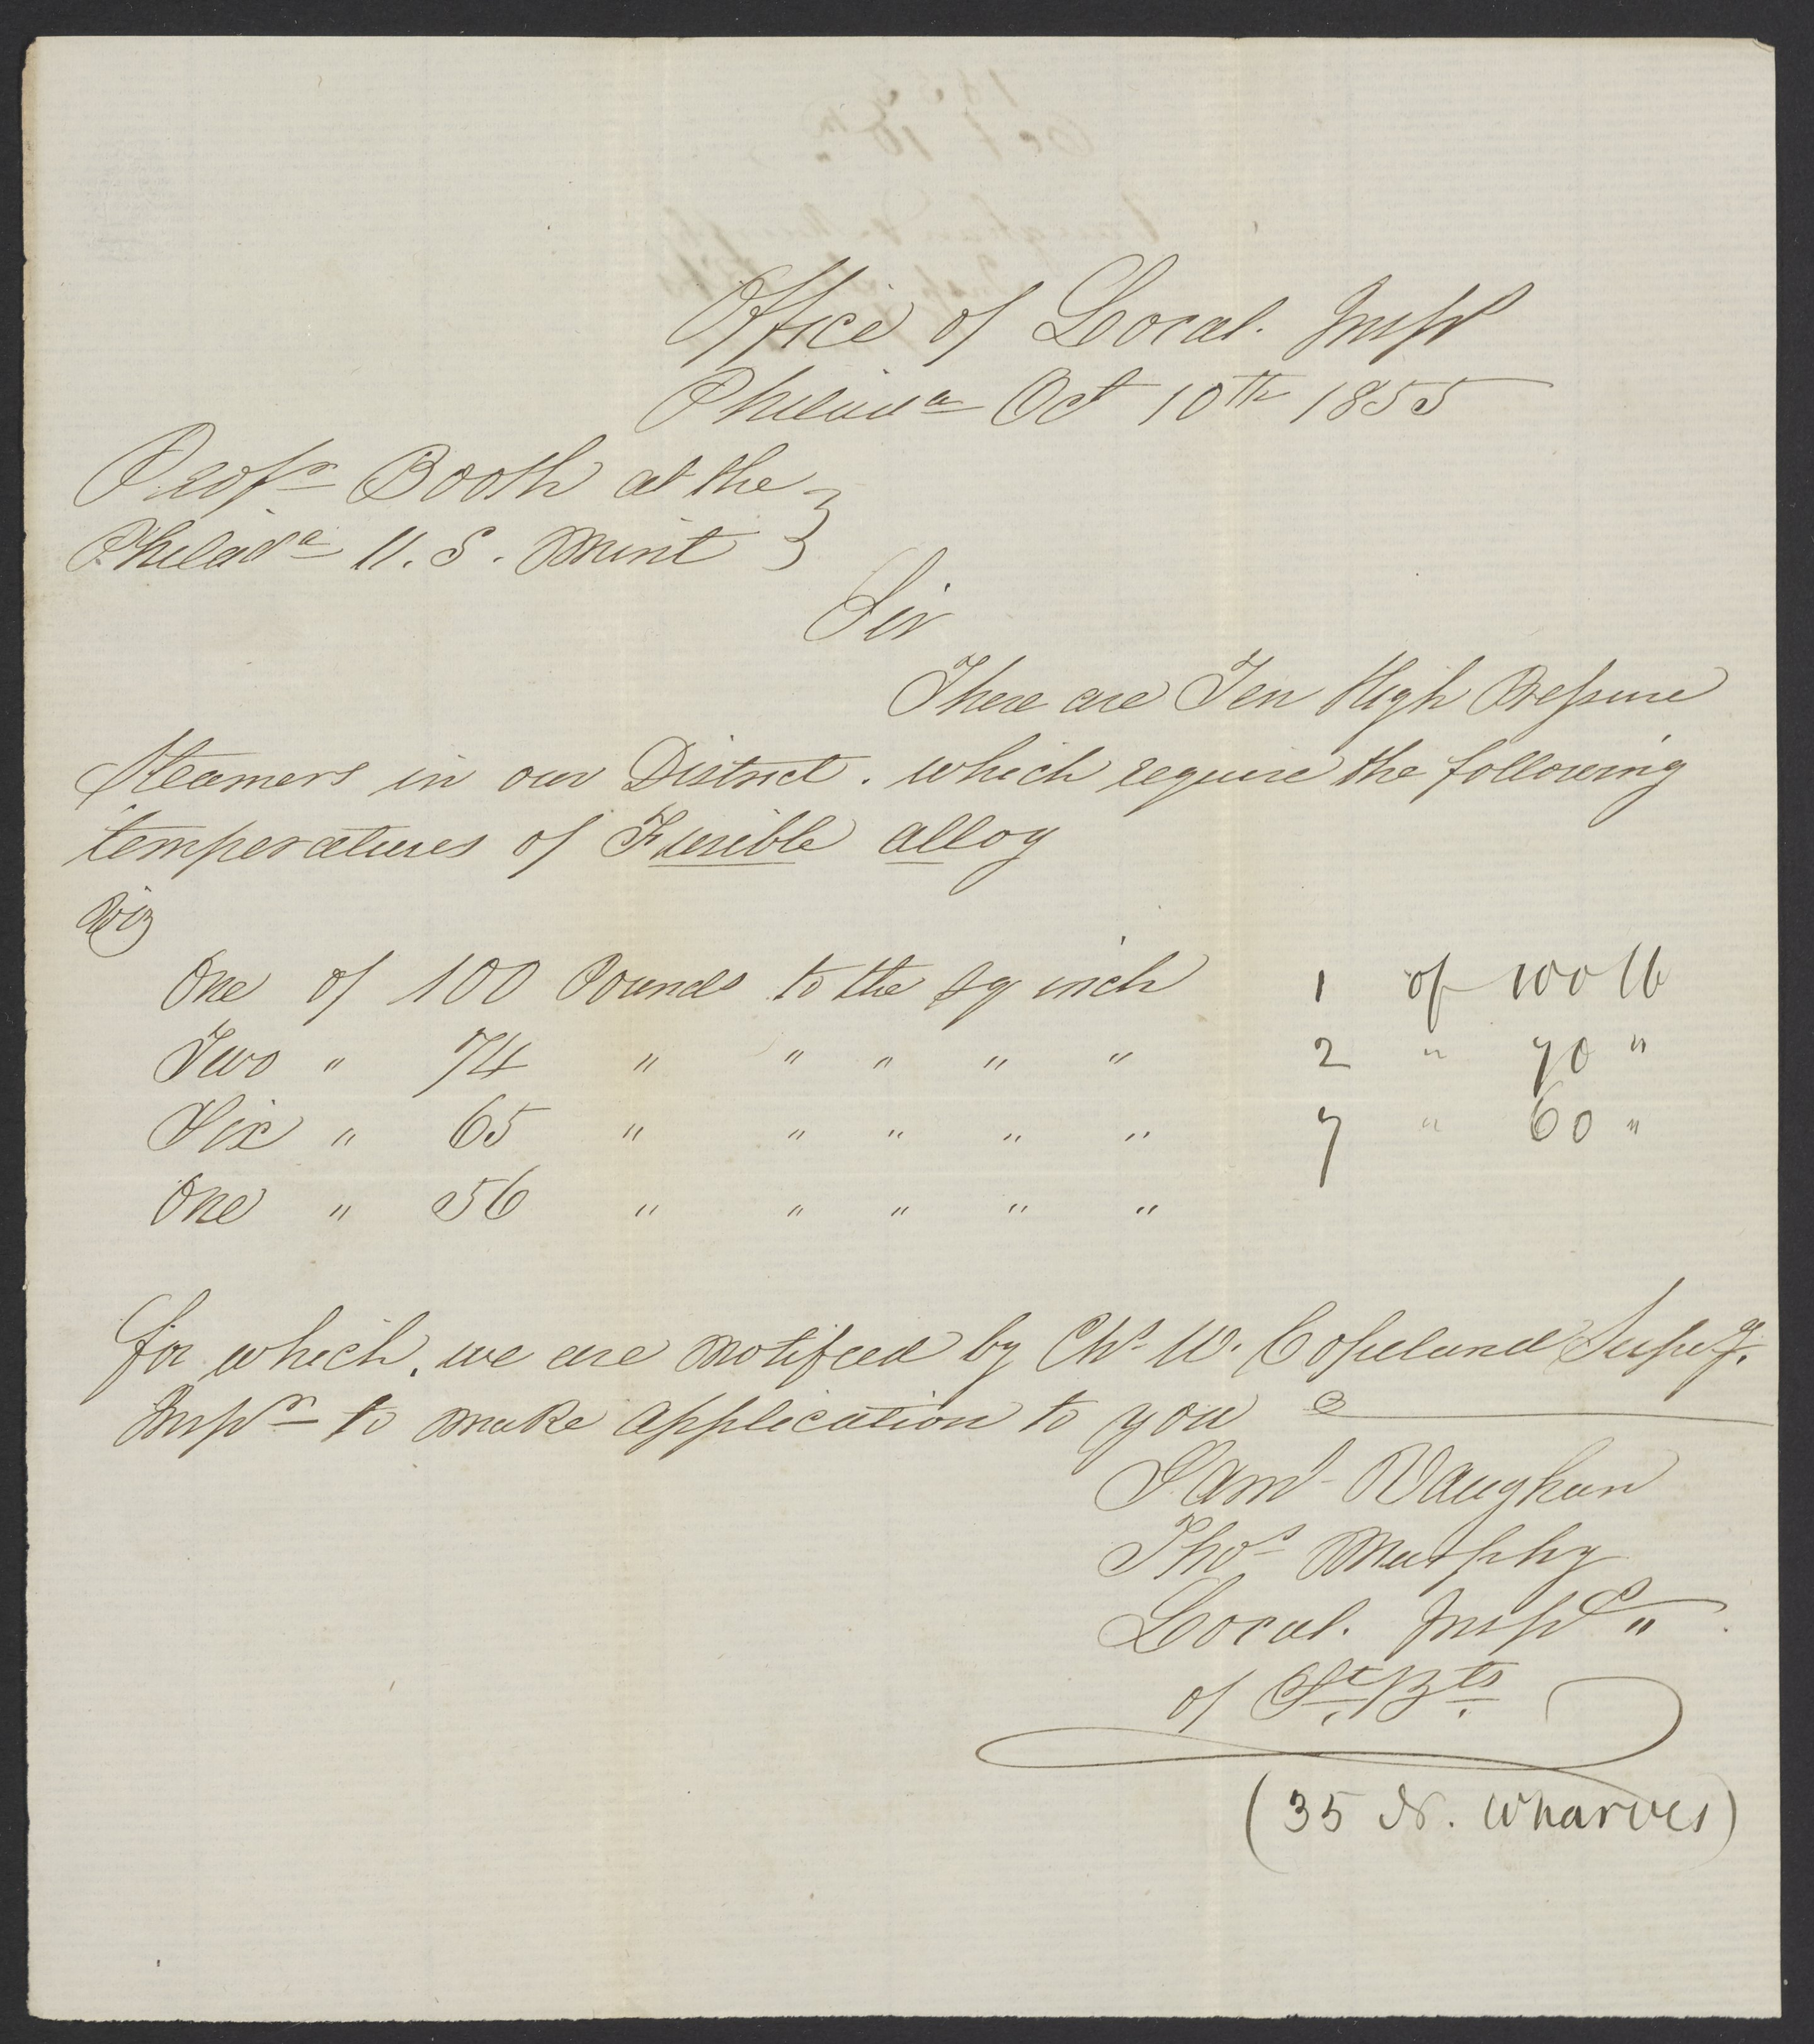 Office of Local. Inspr
Philada Oct 10th 1855
Profr Booth at the
Philada U. S. Mint
Sir
There are Ten High Pressure
Steamers in our District. which require the following
temperatures of Fusible alloy
Viz
One of 100 Pounds to the sq inch 1 of 100 lb
Two " 74 " " " " " 2 " 70 "
Six " 65 " " " " " 7 " 60 "
One " 56 " " " " "
for which, we are notified by Chs W. Copeland Supeg.
Inspr to make application to you
Saml Vaughan
Thos Murphy
Local. Inspr "
of St. Bts.
(35 N. Wharves)